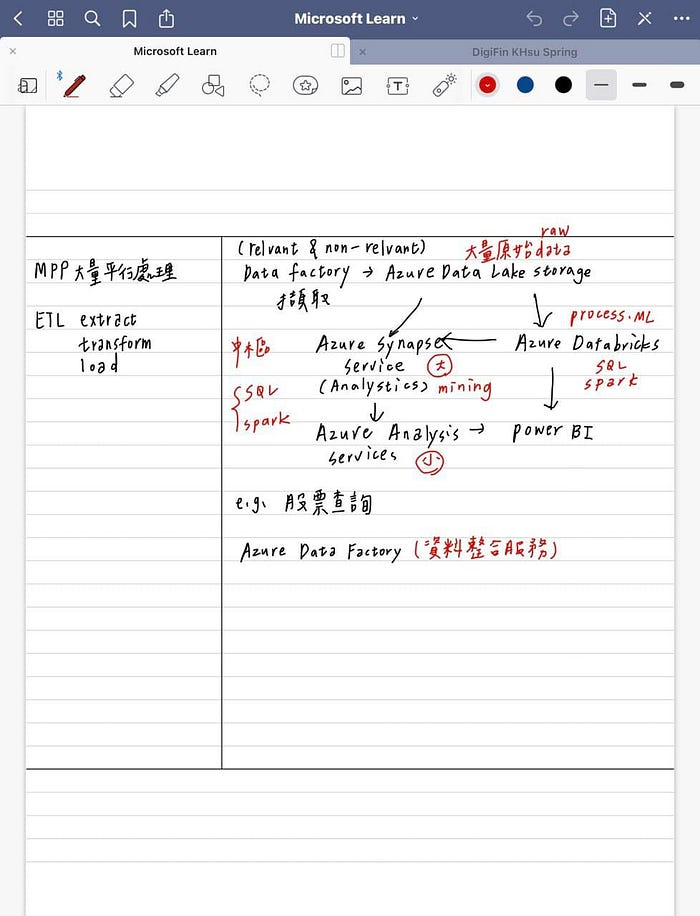 Microsoft Learn
Microsoft Learn
DigiFin KHsu Spring
MPP 大量平行處理
ETL extract
transform
load
(relvant & non-relvant)
raw
大量原始data
Data factory → Azure Data Lake storage
擷取
process.ML
中樞
Azure Synapse
Azure Databricks
service 大
SQL
spark
SQL
(Analystics) mining
spark
Azure Analysis → power BI
services 小
e.g. 股票查詢
Azure Data Factory (資料整合服務)